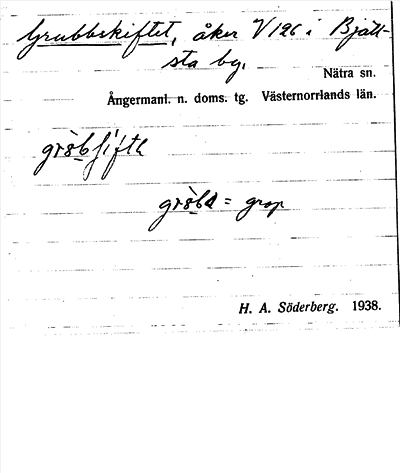 Grubbskiftet, åker V126 i Bjätt-
sta by.
Nätra sn.
Ångermanl. n. doms. tg. Västernorrlands län.
gròb = grop
H. A. Söderberg. 1938.